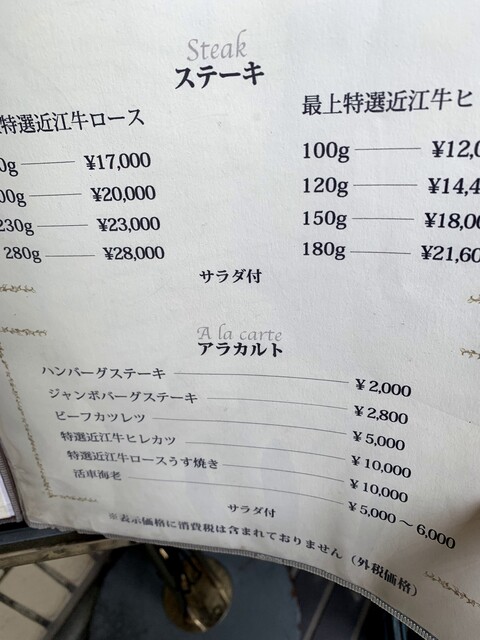 Steak
ステーキ
特選近江牛ロース
0g ¥17,000
00g ¥20,000
230g ¥23,000
280g ¥28,000
最上特選近江牛ヒ
100g ¥12,0
120g ¥14,4
150g ¥18,00
180g ¥21,60
サラダ付
A la carte
アラカルト
ハンバーグステーキ ¥2,000
ジャンボバーグステーキ ¥2,800
ビーフカツレツ ¥5,000
特選近江牛ヒレカツ ¥10,000
特選近江牛ロースうす焼き ¥10,000
活車海老 ¥5,000〜6,000
サラダ付
※表示価格に消費税は含まれておりません（外税価格）